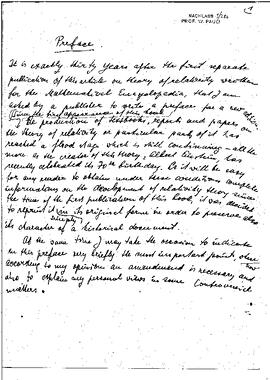 NACHLASS
PROF. W. PAULI
Preface
It is exactly thirty years after the first separate
publication of this article on theory of relativity written
for the Mathematical Encyclopedia, that I am
asked by a publisher to write a preface for a new
Since the first appearance of this book
the production of textbooks, reports and papers on
the theory of relativity or particular parts of it has
reached a flood stage which is still continuing – all the
more as the creator of this theory, Albert Einstein, has
recently celebrated its 70th birthday. As it will be easy
for any reader to obtain under these conditions complete
informations on the development of relativity theory since
the time of the first publication of this book, it was decided
to reprint it in its original form in order to preserve also
simply
the character of a historical document.
At the same time I may take the occasion to indicate
in this preface very briefly the most important points,
according to my opinion an amendment is necessary and
also to explain my personal views in some controversial
matters.